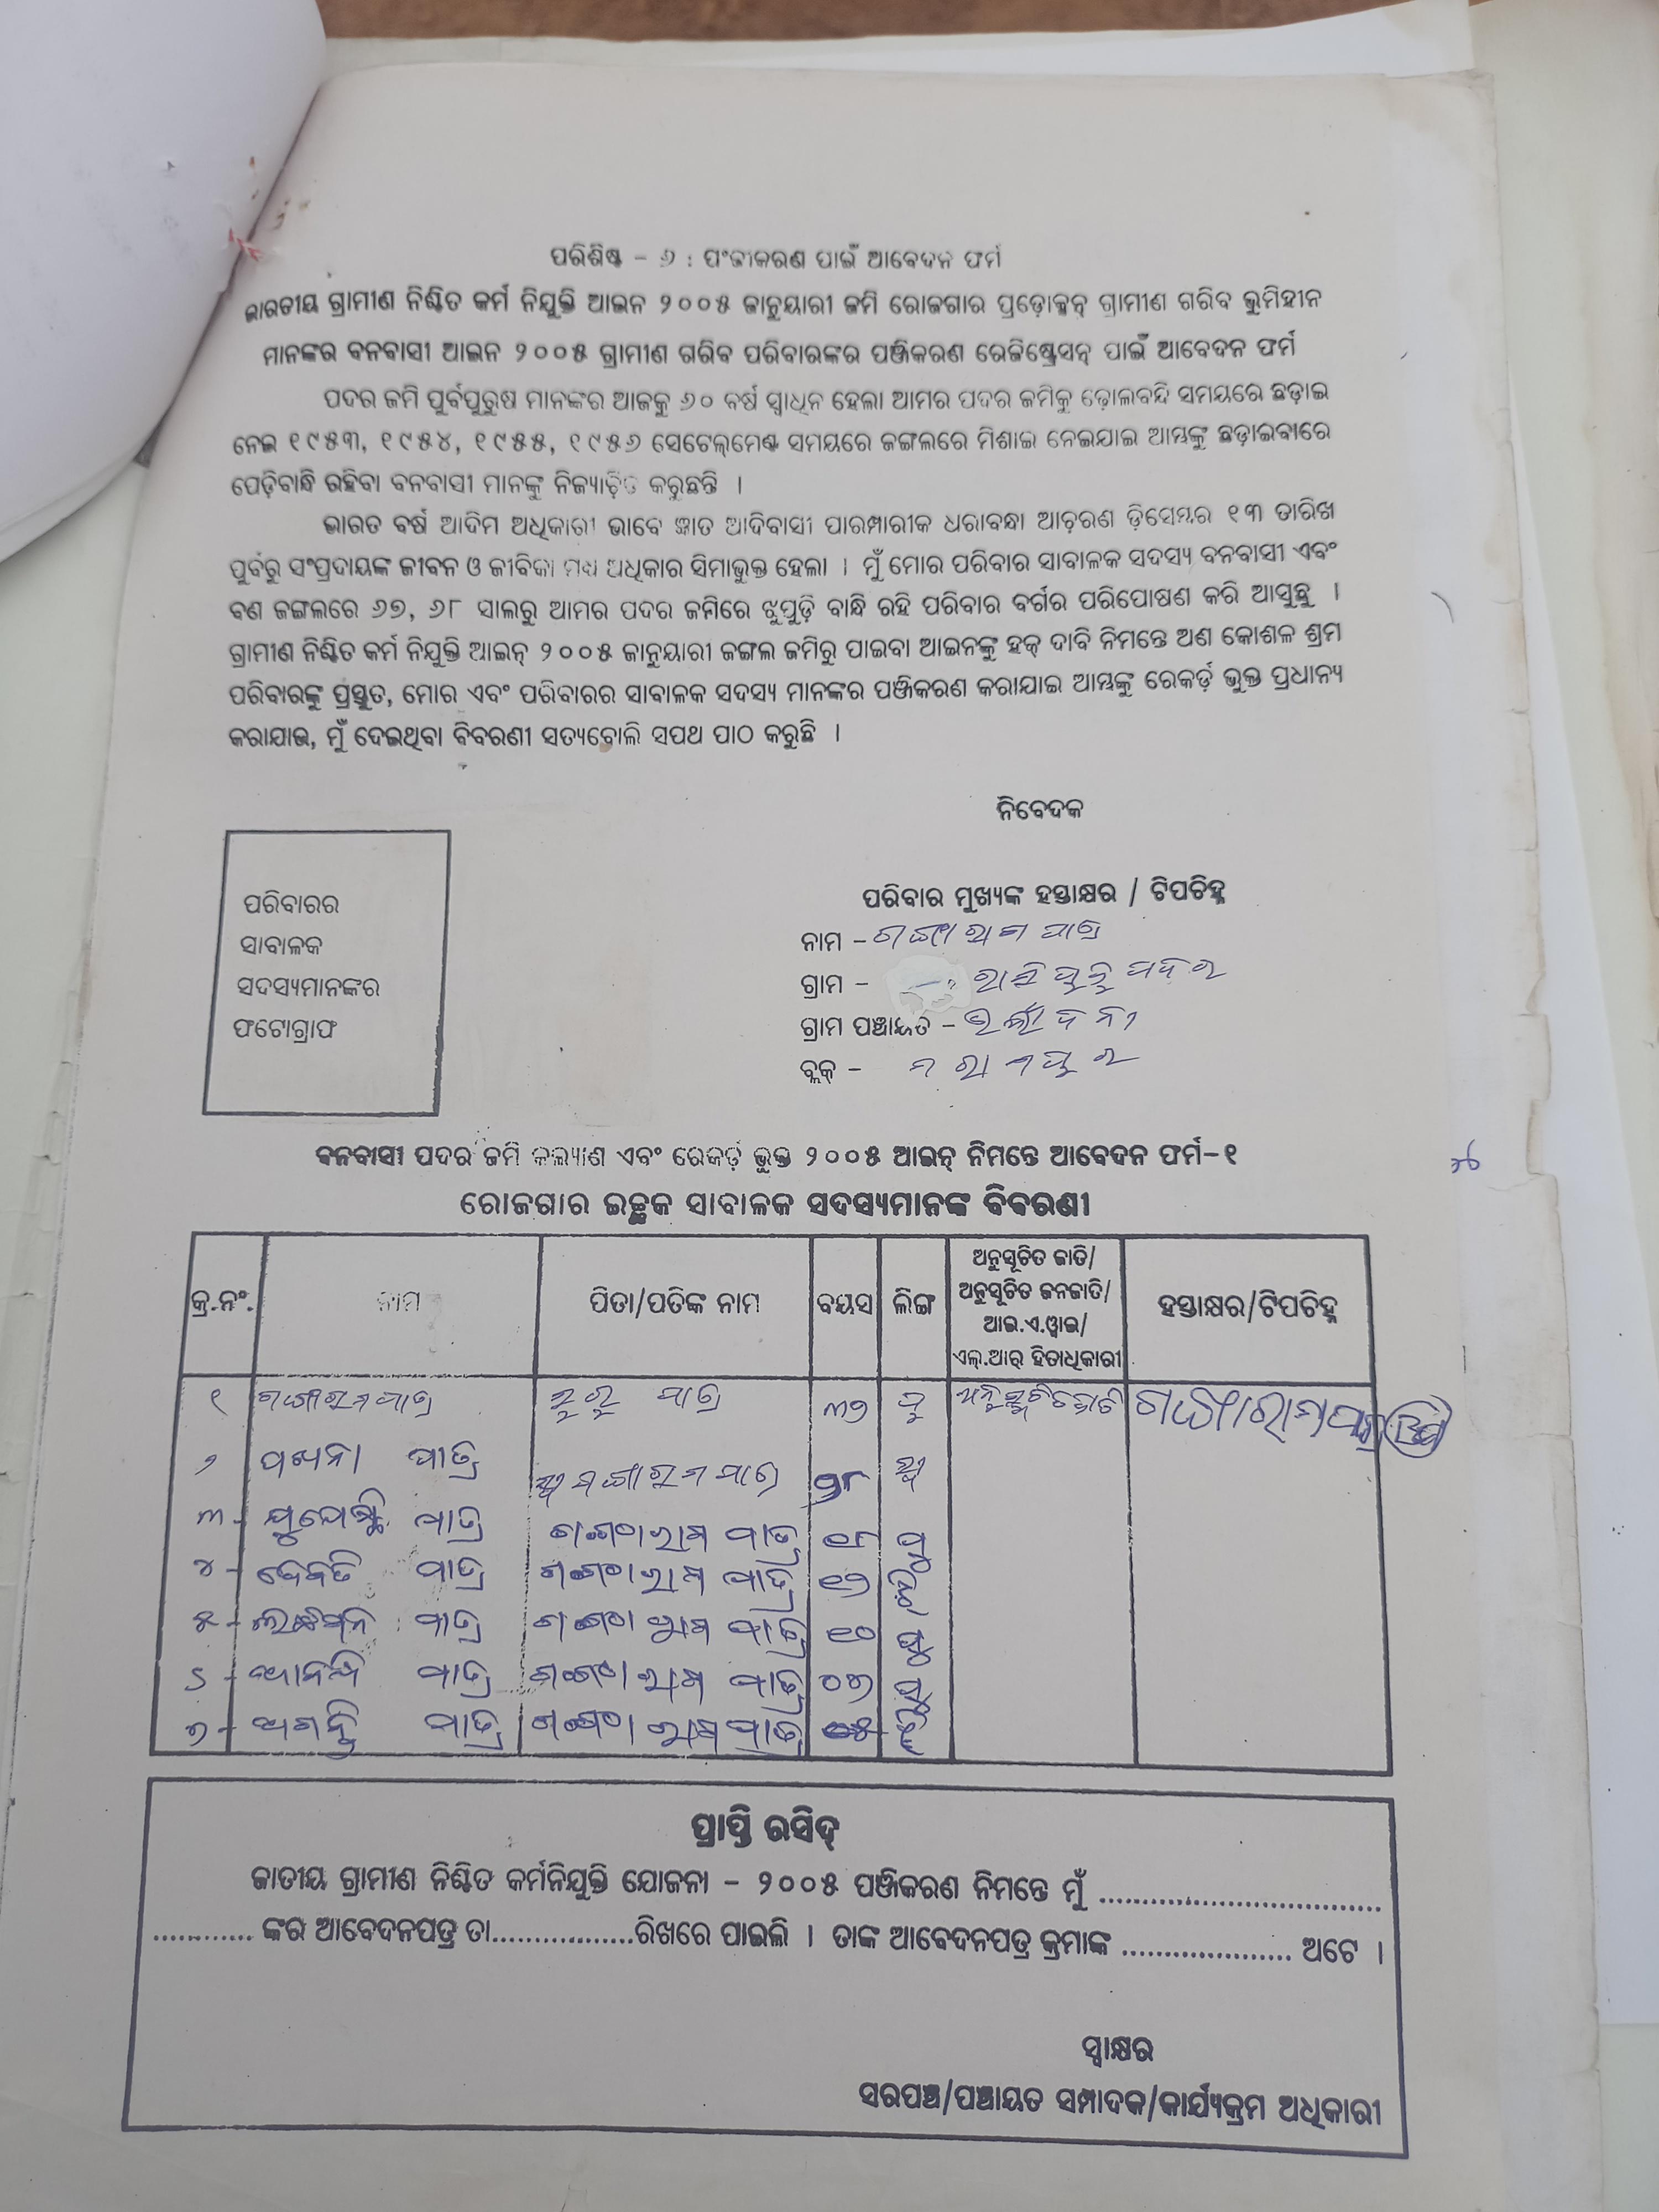 ପରିଶିଷ୍ଟ - ୬ : ପଂଜୀକରଣ ପାଇଁ ଆବେଦନ ଫର୍ମ
ଭାରତୀୟ ଗ୍ରାମୀଣ ନିଶ୍ଚିତ କର୍ମ ନିଯୁକ୍ତି ଆଇନ ୨୦୦୫ ଜାନୁୟାରୀ ଜମି ରୋଜଗାର ପ୍ରଡ଼େକ୍ସନ୍ ଗ୍ରାମୀଣ ଗରିବ ଭୁମିହୀନ
ମାନଙ୍କର ବନବାସୀ ଆଇନ ୨୦୦୫ ଗ୍ରାମୀଣ ଗରିବ ପରିବାରଙ୍କର ପଞ୍ଜିକରଣ ରେଜିଷ୍ଟ୍ରେସନ୍ ପାଇଁ ଆବେଦନ ଫର୍ମ
ପଦର ଜମି ପୁର୍ବପୁରୁଷ ମାନଙ୍କର ଆଜକୁ ୬୦ ବର୍ଷ ସ୍ୱାଧିନ ହେଲା ଆମର ପଦର ଜମିକୁ ଢ଼ୋଲବନ୍ଦି ସମୟରେ ଛଡ଼ାଇ
ନେଇ ୧୯୫୩, ୧୯୫୪, ୧୯୫୫, ୧୯୫୬ ସେଟେଲ୍‌ମେଣ୍ଟ ସମୟରେ ଜଙ୍ଗଲରେ ମିଶାଇ ନେଇଯାଇ ଆମ୍ଭଙ୍କୁ ଛଡ଼ାଇବାରେ
ପେଡ଼ିବାନ୍ଧି ରହିବା ବନବାସୀ ମାନଙ୍କୁ ନିଜ୍ୟାଡ଼ିତ କରୁଛନ୍ତି ।
ଭାରତ ବର୍ଷ ଆଦିମ ଅଧିକାରୀ ଭାବେ ଜ୍ଞାତ ଆଦିବାସୀ ପାରମ୍ପାରୀକ ଧରାବନ୍ଧା ଆଚ଼ରଣ ଡ଼ିସେମ୍ବର ୧୩ ତାରିଖ
ପୁର୍ବରୁ ସଂପ୍ରଦାୟଙ୍କ ଜୀବନ ଓ ଜୀବିକା ମଧ୍ୟ ଅଧିକାର ସିମାଭୁକ୍ତ ହେଲା । ମୁଁ ମୋର ପରିବାର ସାବାଳକ ସଦସ୍ୟ ବନବାସୀ ଏବଂ
ବଣ ଜଙ୍ଗଲରେ ୬୭, ୬୮ ସାଲରୁ ଆମର ପଦର ଜମିରେ ଝୁମୁଡ଼ି ବାନ୍ଧି ରହି ପରିବାର ବର୍ଗର ପରିପୋଷଣ କରି ଆସୁଛୁ ।
ଗ୍ରାମୀଣ ନିଶ୍ଚିତ କର୍ମ ନିଯୁକ୍ତି ଆଇନ୍ ୨୦୦୫ ଜାନୁୟାରୀ ଜଙ୍ଗଲ ଜମିରୁ ପାଇବା ଆଇନଙ୍କୁ ହକ୍ ଦାବି ନିମନ୍ତେ ଅଣ କୋଶଳ ଶ୍ରମ
ପରିବାରଙ୍କୁ ପ୍ରସ୍ତୁତ, ମୋର ଏବଂ ପରିବାରର ସାବାଳକ ସଦସ୍ୟ ମାନଙ୍କର ପଞ୍ଜିକରଣ କରାଯାଇ ଆମ୍ଭଙ୍କୁ ରେକର୍ଡ଼ ଭୁକ୍ତ ପ୍ରଧାନ୍ୟ
କରାଯାଉ, ମୁଁ ଦେଇଥିବା ବିବରଣୀ ସତ୍ୟବୋଲି ସପଥ ପାଠ କରୁଛି ।
ନିବେଦକ
ପରିବାରର
ସାବାଳକ
ସଦସ୍ୟମାନଙ୍କର
ଫଟୋଗ୍ରାଫ
ପରିବାର ମୁଖ୍ୟଙ୍କ ହସ୍ତାକ୍ଷର / ଟିପଚିହ୍ନ
ନାମ - ଗଙ୍ଗାରାମ ପାତ୍ର
ଗ୍ରାମ -
ଗ୍ରାମ ପଞ୍ଚାୟତ -
ବ୍ଲକ୍ -
ବନବାସୀ ପଦର ଜମି କଲ୍ୟାଣ ଏବଂ ରେକର୍ଡ଼ ଭୁକ୍ତ ୨୦୦୫ ଆଇନ୍ ନିମନ୍ତେ ଆବେଦନ ଫର୍ମ-୧
ରୋଜଗାର ଇଚ୍ଛୁକ ସାବାଳକ ସଦସ୍ୟମାନଙ୍କ ବିବରଣୀ
କ୍ର.ନଂ. ନାମ ପିତା/ପତିଙ୍କ ନାମ ବୟସ ଲିଙ୍ଗ ଅନୁସୂଚିତ ଜାତି/ ଅନୁସୂଚିତ ଜନଜାତି/ ଆଇ.ଏ.ୱାଇ/ ଏଲ୍.ଆର୍ ହିତାଧିକାରୀ ହସ୍ତାକ୍ଷର/ଟିପଚିହ୍ନ
୧ ଗଙ୍ଗାରାମ ପାତ୍ର ପାତ୍ର ୩୭ ପୁ ଗଙ୍ଗାରାମ ପାତ୍ର
୨ ପାତ୍ର ଗଙ୍ଗାରାମ ପାତ୍ର ସ୍ତ୍ରୀ
୩ - ପାତ୍ର ଗଙ୍ଗାରାମ ପାତ୍ର ୧୮ ପୁ
୪ - ପାତ୍ର ଗଙ୍ଗାରାମ ପାତ୍ର ୧୭
୫ - ପାତ୍ର ଗଙ୍ଗାରାମ ପାତ୍ର ୧୦ ପୁ
୬ - ପାତ୍ର ଗଙ୍ଗାରାମ ପାତ୍ର ୦୭ ପୁ
୭ - ପାତ୍ର ଗଙ୍ଗାରାମ ପାତ୍ର
ପ୍ରାପ୍ତି ରସିଦ୍
ଜାତୀୟ ଗ୍ରାମୀଣ ନିଶ୍ଚିତ କର୍ମନିଯୁକ୍ତି ଯୋଜନା - ୨୦୦୫ ପଞ୍ଜିକରଣ ନିମନ୍ତେ ମୁଁ ................................
............ ଙ୍କର ଆବେଦନପତ୍ର ତା................ରିଖରେ ପାଇଲି । ତାଙ୍କ ଆବେଦନପତ୍ର କ୍ରମାଙ୍କ .................... ଅଟେ ।
ସ୍ୱାକ୍ଷର
ସରପଞ୍ଚ/ପଞ୍ଚାୟତ ସମ୍ପାଦକ/କାର୍ଯ୍ୟକ୍ରମ ଅଧିକାରୀ